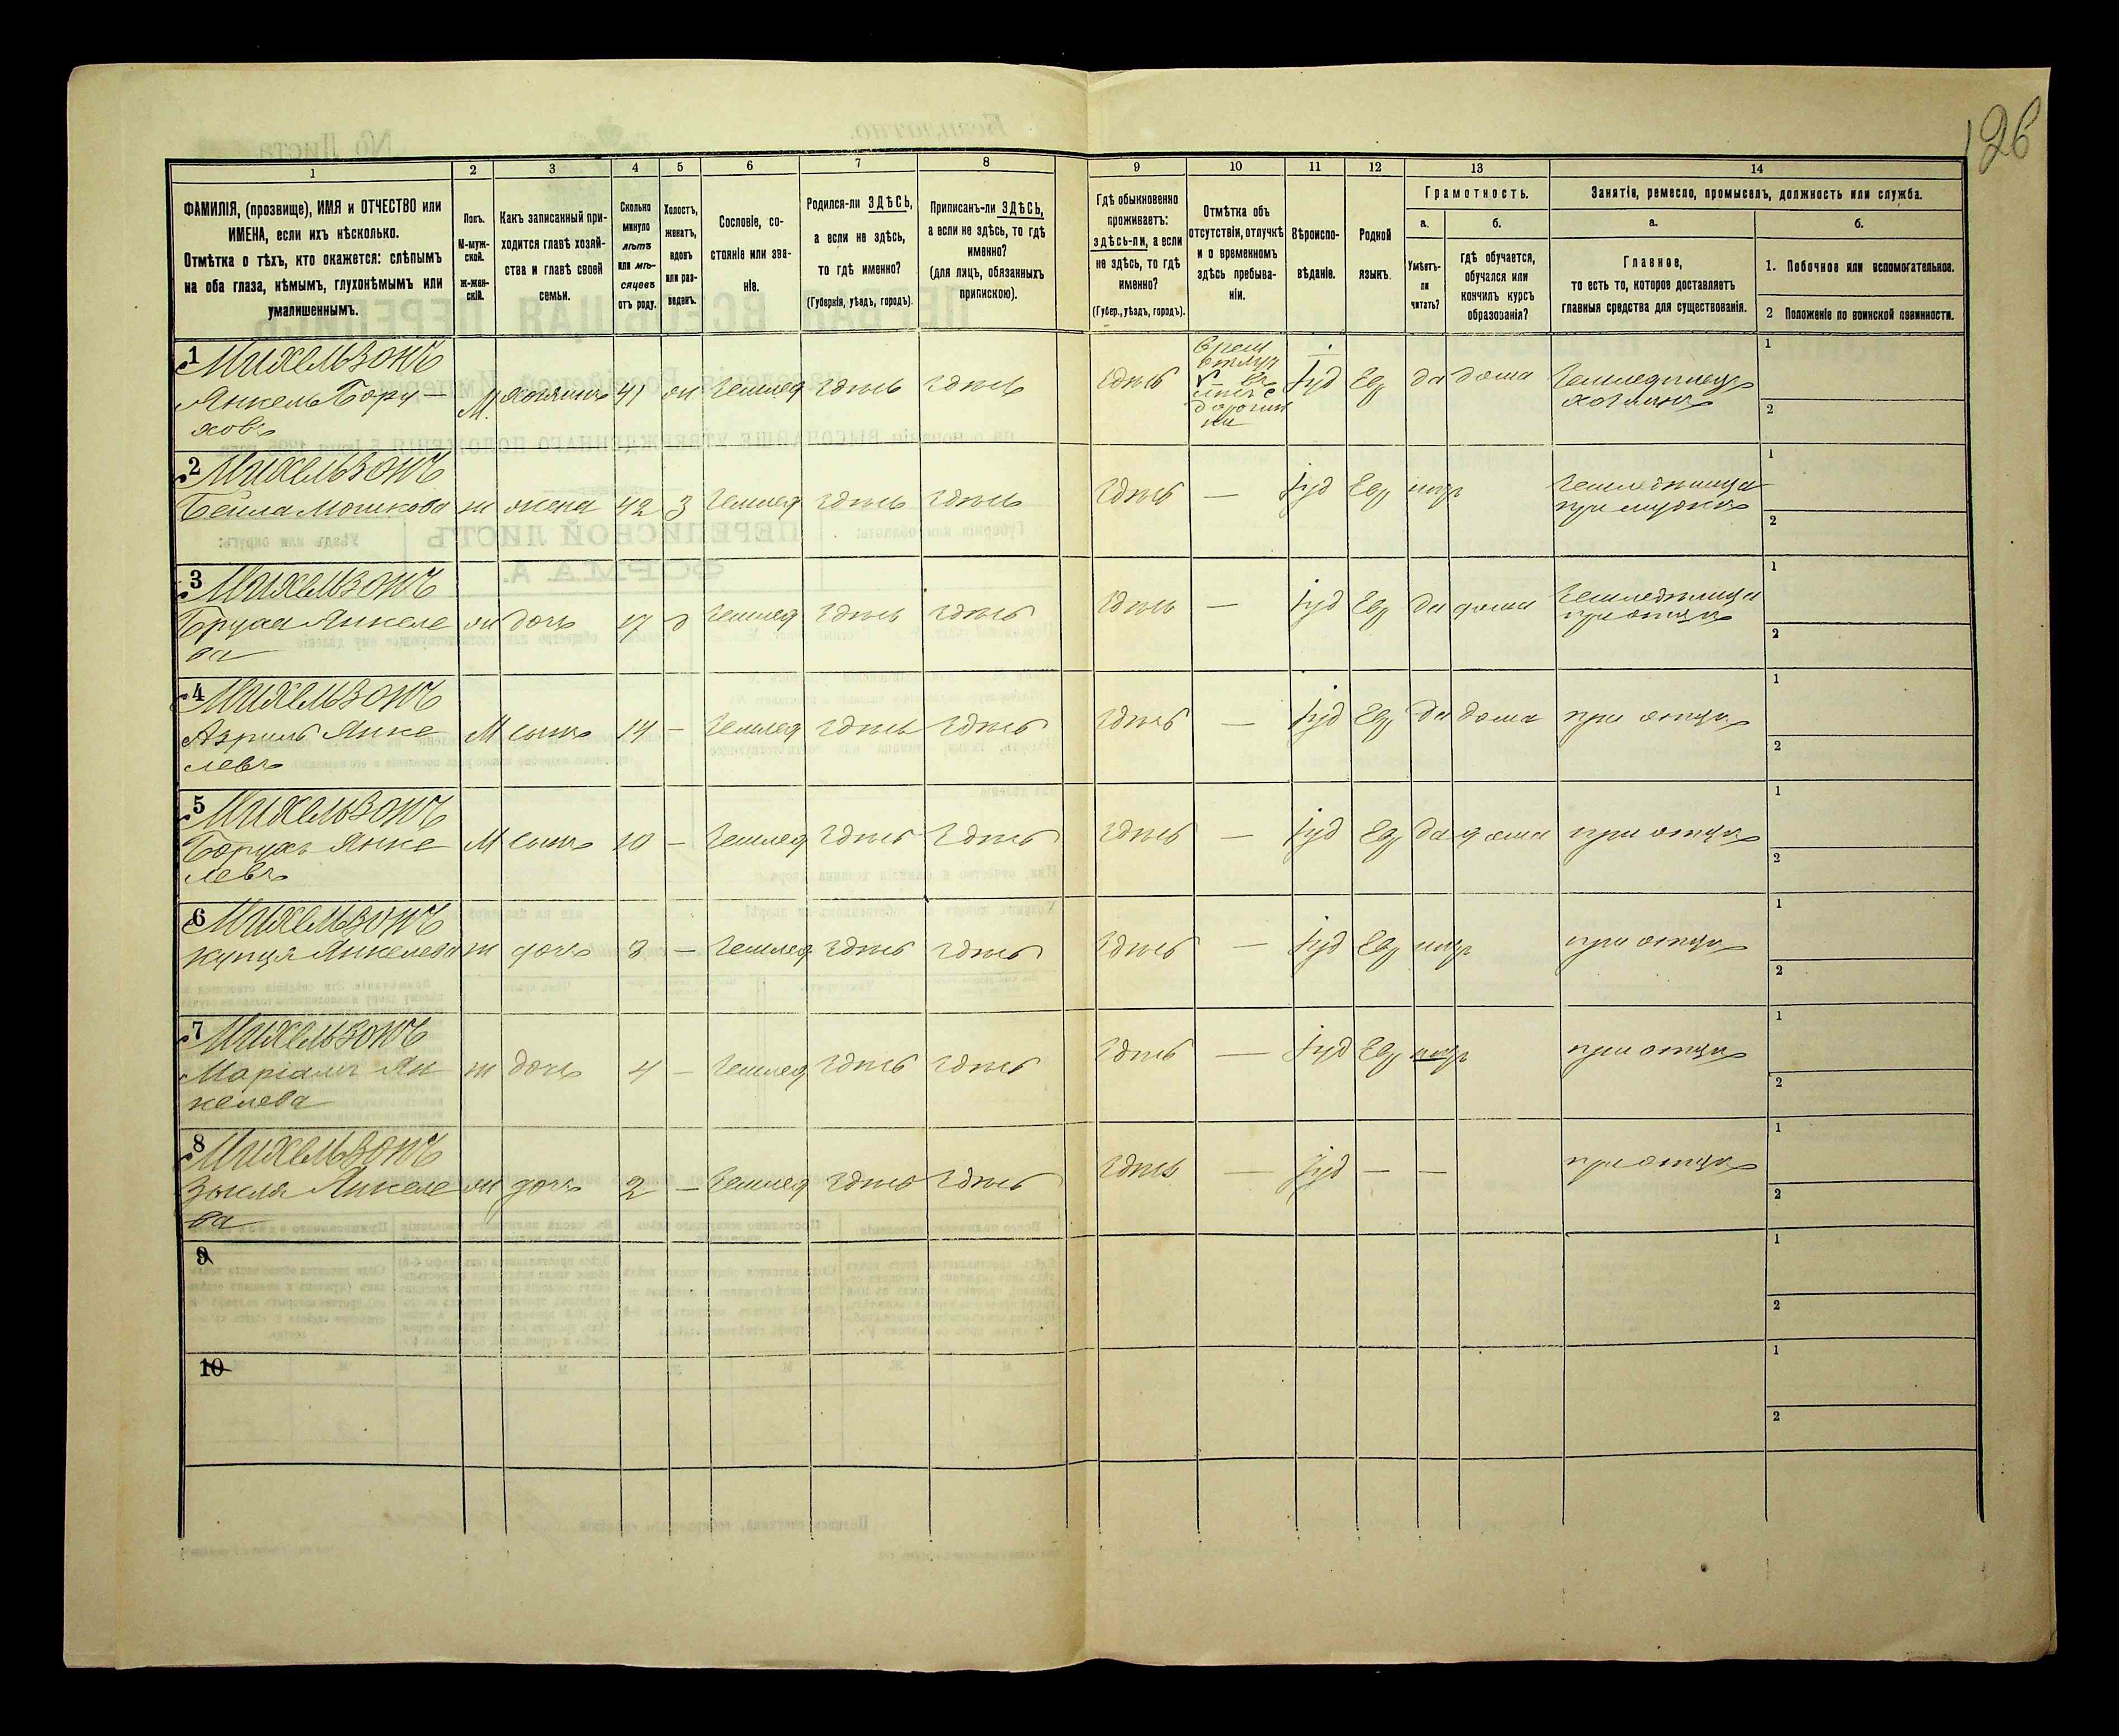 126
1
2
3
4
5
6
7
8
9
10
11
12
13
14
ФАМИЛІЯ, (прозвище), ИМЯ и ОТЧЕСТВО или
ИМЕНА, если ихъ нѣсколько.
Отмѣтка о тѣхъ, кто окажется: слѣпымъ
на оба глаза, нѣмымъ, глухонѣмымъ или
умалишеннымъ.
Полъ.
М-муж-
ской.
ж-жен-
скій.
Какъ записанный при-
ходится главѣ хозяй-
ства и главѣ своей
семьи.
Сколько
минуло
лѣтъ
или мѣ-
сяцевъ
отъ роду.
Холостъ,
женатъ,
вдовъ
или раз-
веденъ.
Сословіе, со-
стояніе или зва-
ніе.
Родился-ли ЗДѢСЬ,
а если не здѣсь,
то гдѣ именно?
(Губернія, уѣздъ, городъ).
Приписанъ-ли ЗДѢСЬ,
а если не здѣсь, то гдѣ
именно?
(для лицъ, обязанныхъ
припискою).
Гдѣ обыкновенно
проживаетъ:
здѣсь-ли, а если
не здѣсь, то гдѣ
именно?
(Губер., уѣздъ, городъ).
Отмѣтка объ
отсутствіи, отлучкѣ
и о временномъ
здѣсь пребыва-
ніи.
Вѣроиспо-
вѣданіе.
Родной
языкъ.
Грамотность.
а.
Умѣетъ-
ли
читать?
б.
гдѣ обучается,
обучался или
кончилъ курсъ
образованія?
Занятія, ремесло, промыселъ, должность или служба.
а.
Главное,
то есть то, которое доставляетъ
главныя средства для существованія.
б.
1. Побочное или вспомогательное.
2 Положеніе по воинской повинности.
1 Михельзонъ
Янкель Бору-
ховъ
М. хозяинъ 41 ж Землед здѣсь здѣсь здѣсь
Іуд Евр да дома Земледѣлецъ
хозяинъ
1
2
2 Михельзонъ
Бейла Мошкова ж жена 42 З Землед здѣсь здѣсь здѣсь — Іуд Евр негр Земледѣлица
при мужѣ
1
2
3 Михельзонъ
Янкеле
ва
ж дочь 17 д Землед здѣсь здѣсь здѣсь — Іуд Евр да дома Земледѣлица
при отцѣ
1
2
4 Михельзонъ
Азриль Янке
левъ
М сынъ 14 — Землед здѣсь здѣсь здѣсь — Іуд Евр да дома при отцѣ
1
2
5 Михельзонъ
Борухъ Янке
левъ
М сынъ 10 — Землед здѣсь здѣсь здѣсь — Іуд Евр да дома при отцѣ
1
2
6 Михельзонъ
Янкелева ж дочь 8 — Землед здѣсь здѣсь здѣсь — Іуд Евр негр при отцѣ
1
2
7 Михельзонъ
Маріамъ Ян
келева
ж дочь 4 — Землед здѣсь здѣсь здѣсь — Іуд Евр негр при отцѣ
1
2
8 Михельзонъ
Янкеле
ва
ж дочь 2 — Землед здѣсь здѣсь здѣсь — Іуд — — при отцѣ
1
2
9
1
2
10
1
2